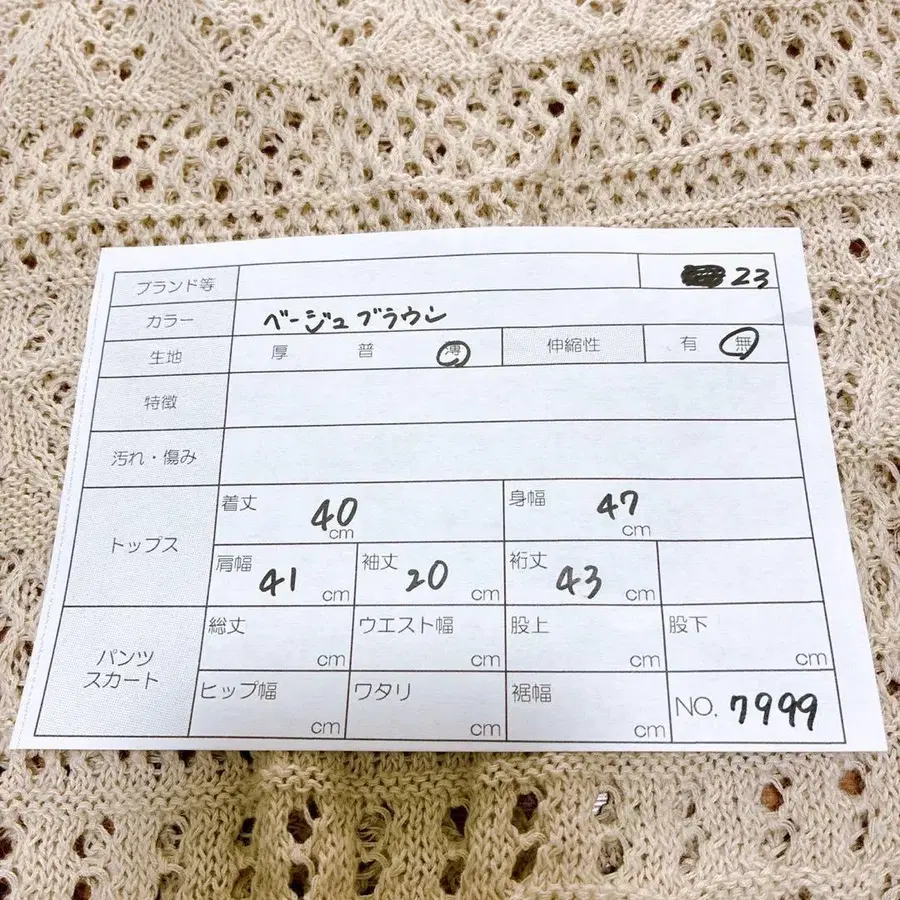 ブランド等 23
カラー ベージュブラウン
生地 厚 普 薄 伸縮性 有 無
特徴
汚れ・傷み
トップス 着丈 40 cm 身幅 47 cm
肩幅 41 cm 袖丈 20 cm 裄丈 43 cm
パンツ スカート 総丈 cm ウエスト幅 cm 股上 cm 股下 cm
ヒップ幅 cm ワタリ cm 裾幅 cm NO. 7999